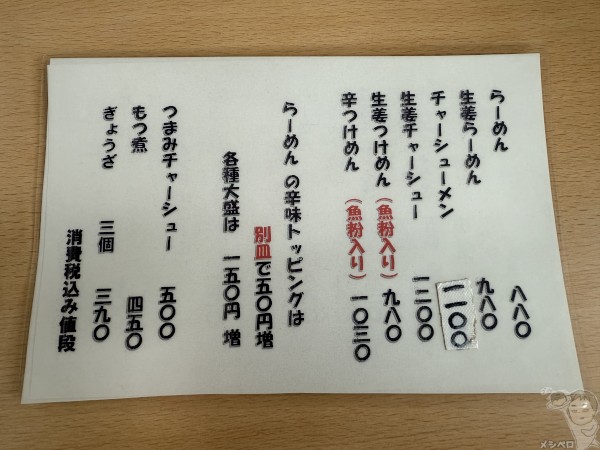 らーめん 八八〇
生姜らーめん 九八〇
チャーシューメン 一一〇〇
生姜チャーシュー 一二〇〇
生姜つけめん（魚粉入り）九八〇
辛つけめん（魚粉入り）一〇三〇
らーめん の辛味トッピングは
別皿で五〇円増
各種大盛は 一五〇円 増
つまみチャーシュー 五〇〇
もつ煮 四五〇
ぎょうざ 三個 三九〇
消費税込み値段
メシペロ